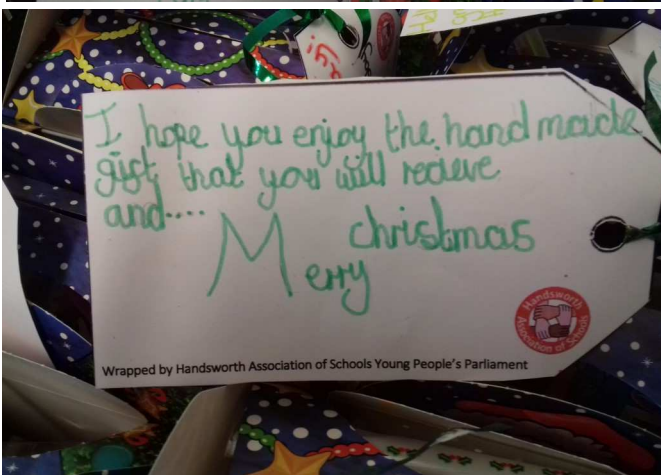 I hope you enjoy the hand made
gift that you will recieve
and....
Merry christmas
Handsworth
Association of Schools
Wrapped by Handsworth Association of Schools Young People's Parliament